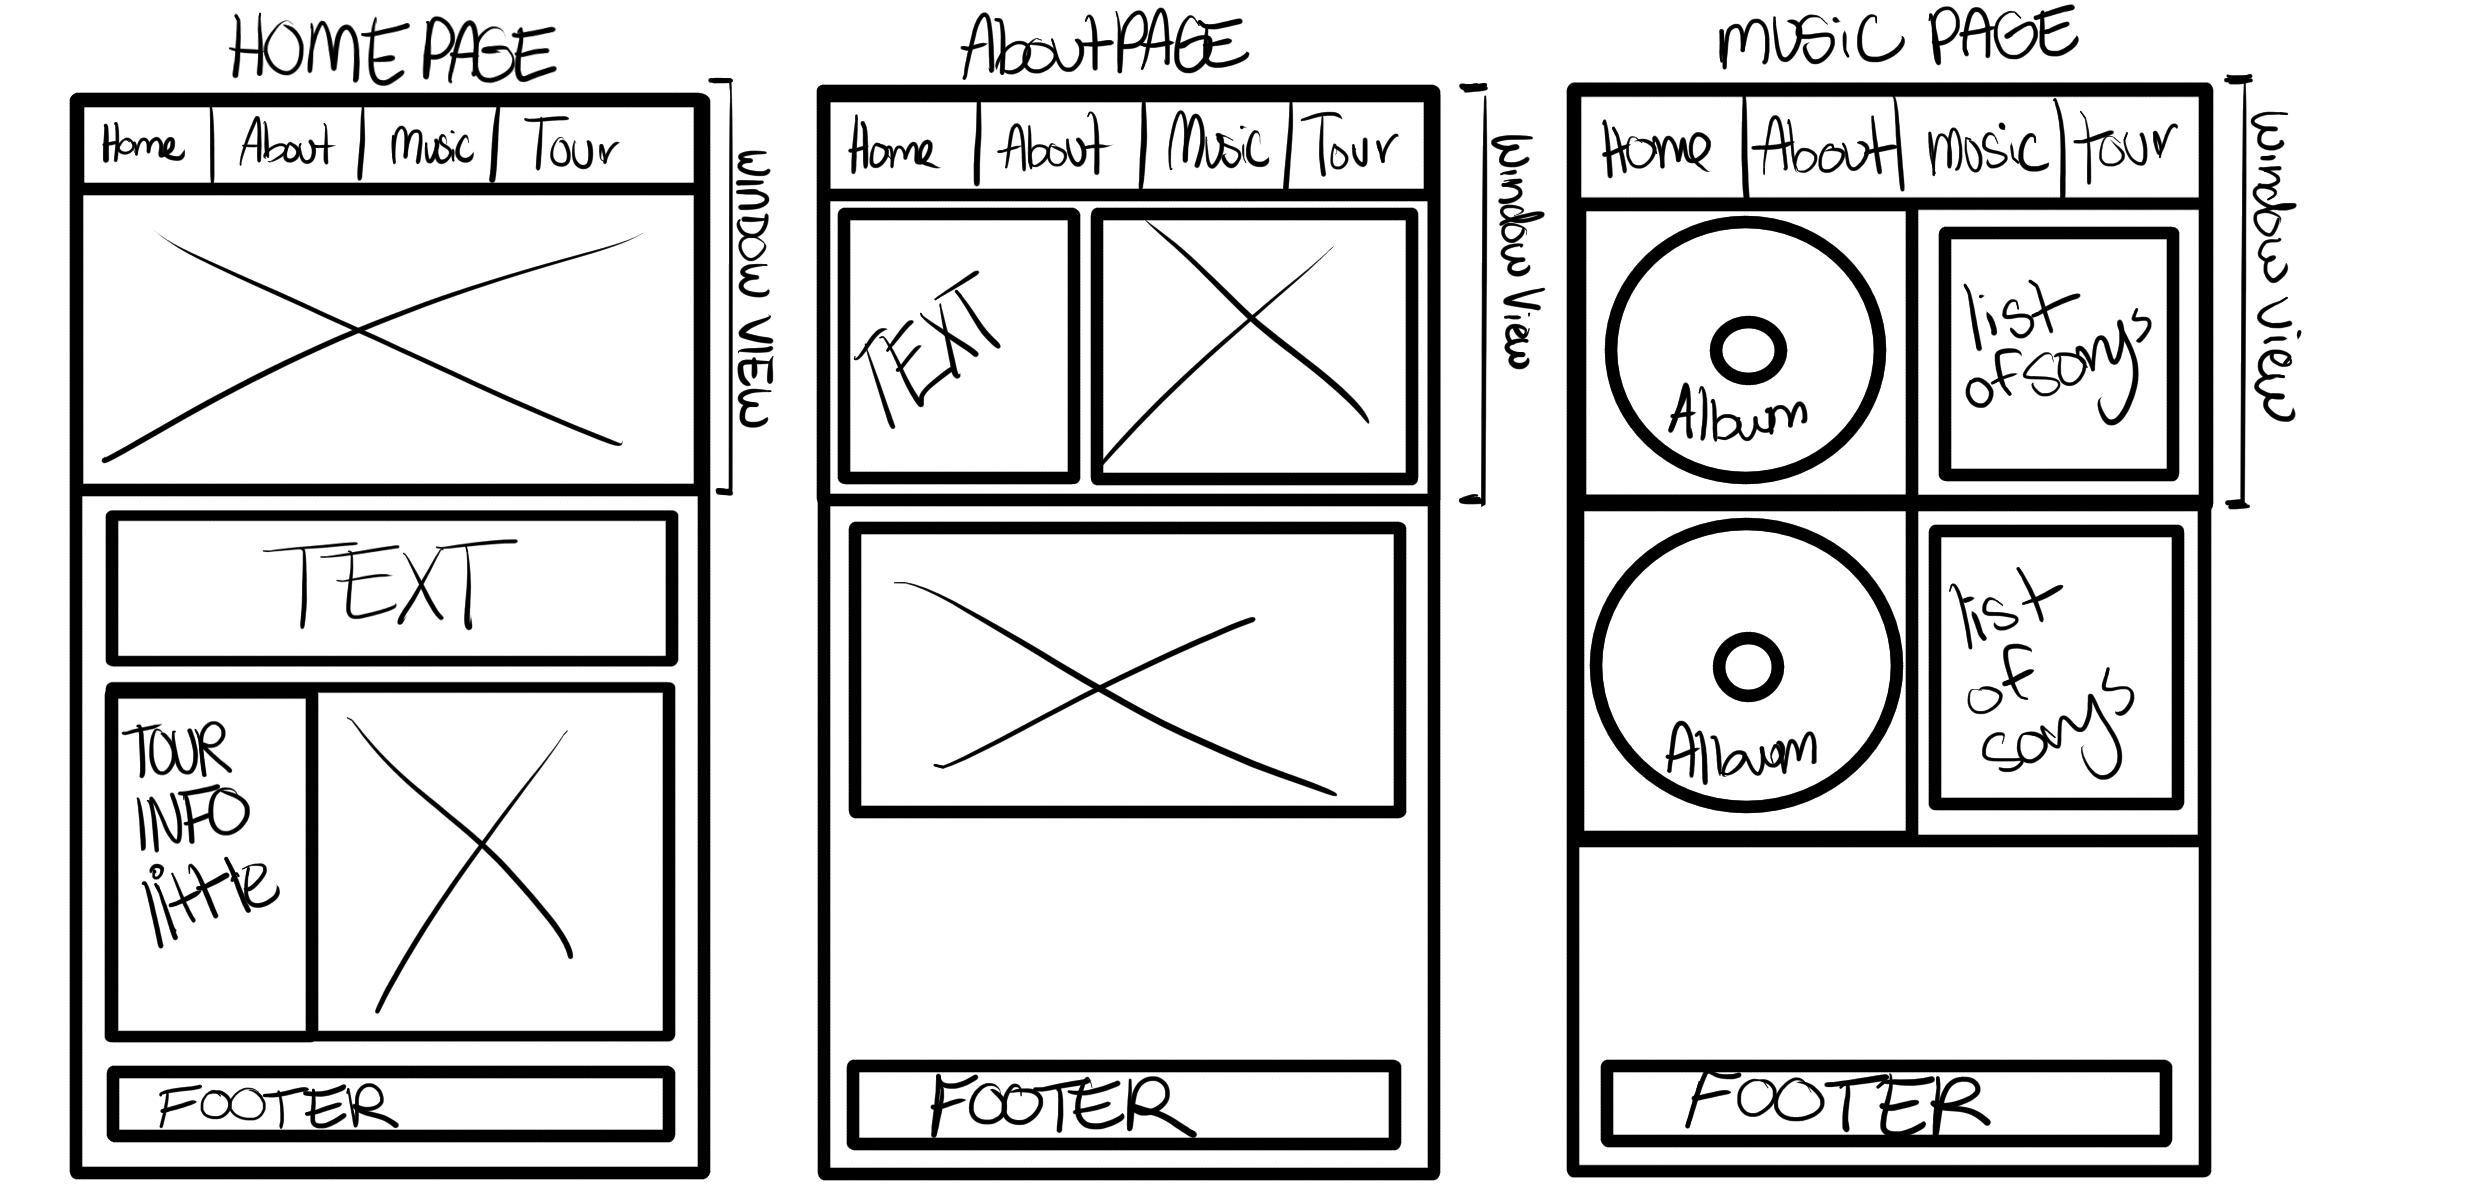 HOME PAGE
Home About Music Tour
WINDOW VIEW
TEXT
TOUR
INFO
little
FOOTER
About PAGE
Home About Music Tour
Window View
TEXT
FOOTER
MUSiC PAGE
Home About Music Tour
Window View
Album
list
of songs
Album
list
of
songs
FOOTER